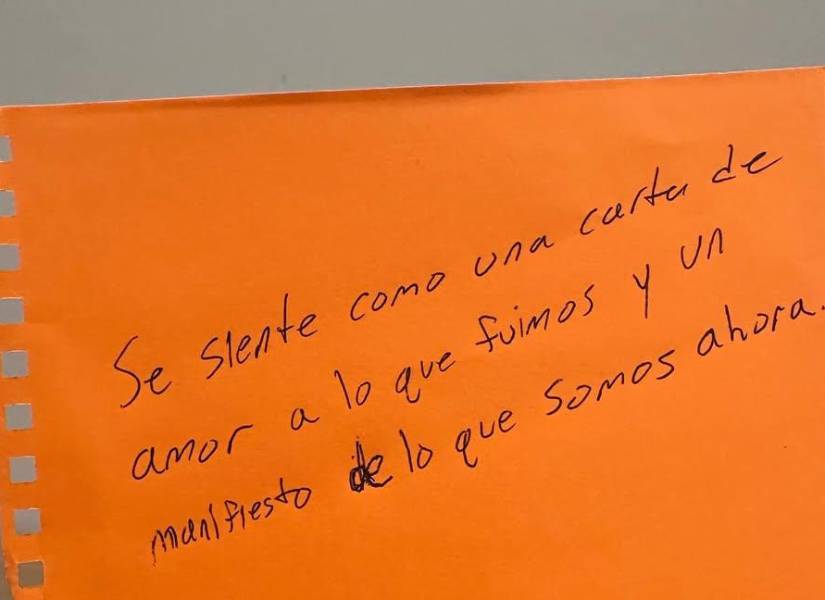 Se siente como una carta de
amor a lo que fuimos y un
manifiesto de lo que somos ahora.